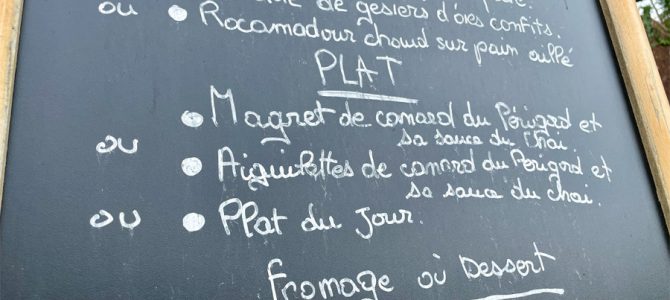 de gesiers d'oies confits.
ou • Rocamadour chaud sur pain aillé
PLAT
• Magret de canard du Périgord et
sa sauce du Chai.
ou
• Aiguillettes de canard du Périgord et
sa sauce du chai.
ou • Plat du Jour.
Fromage où Dessert